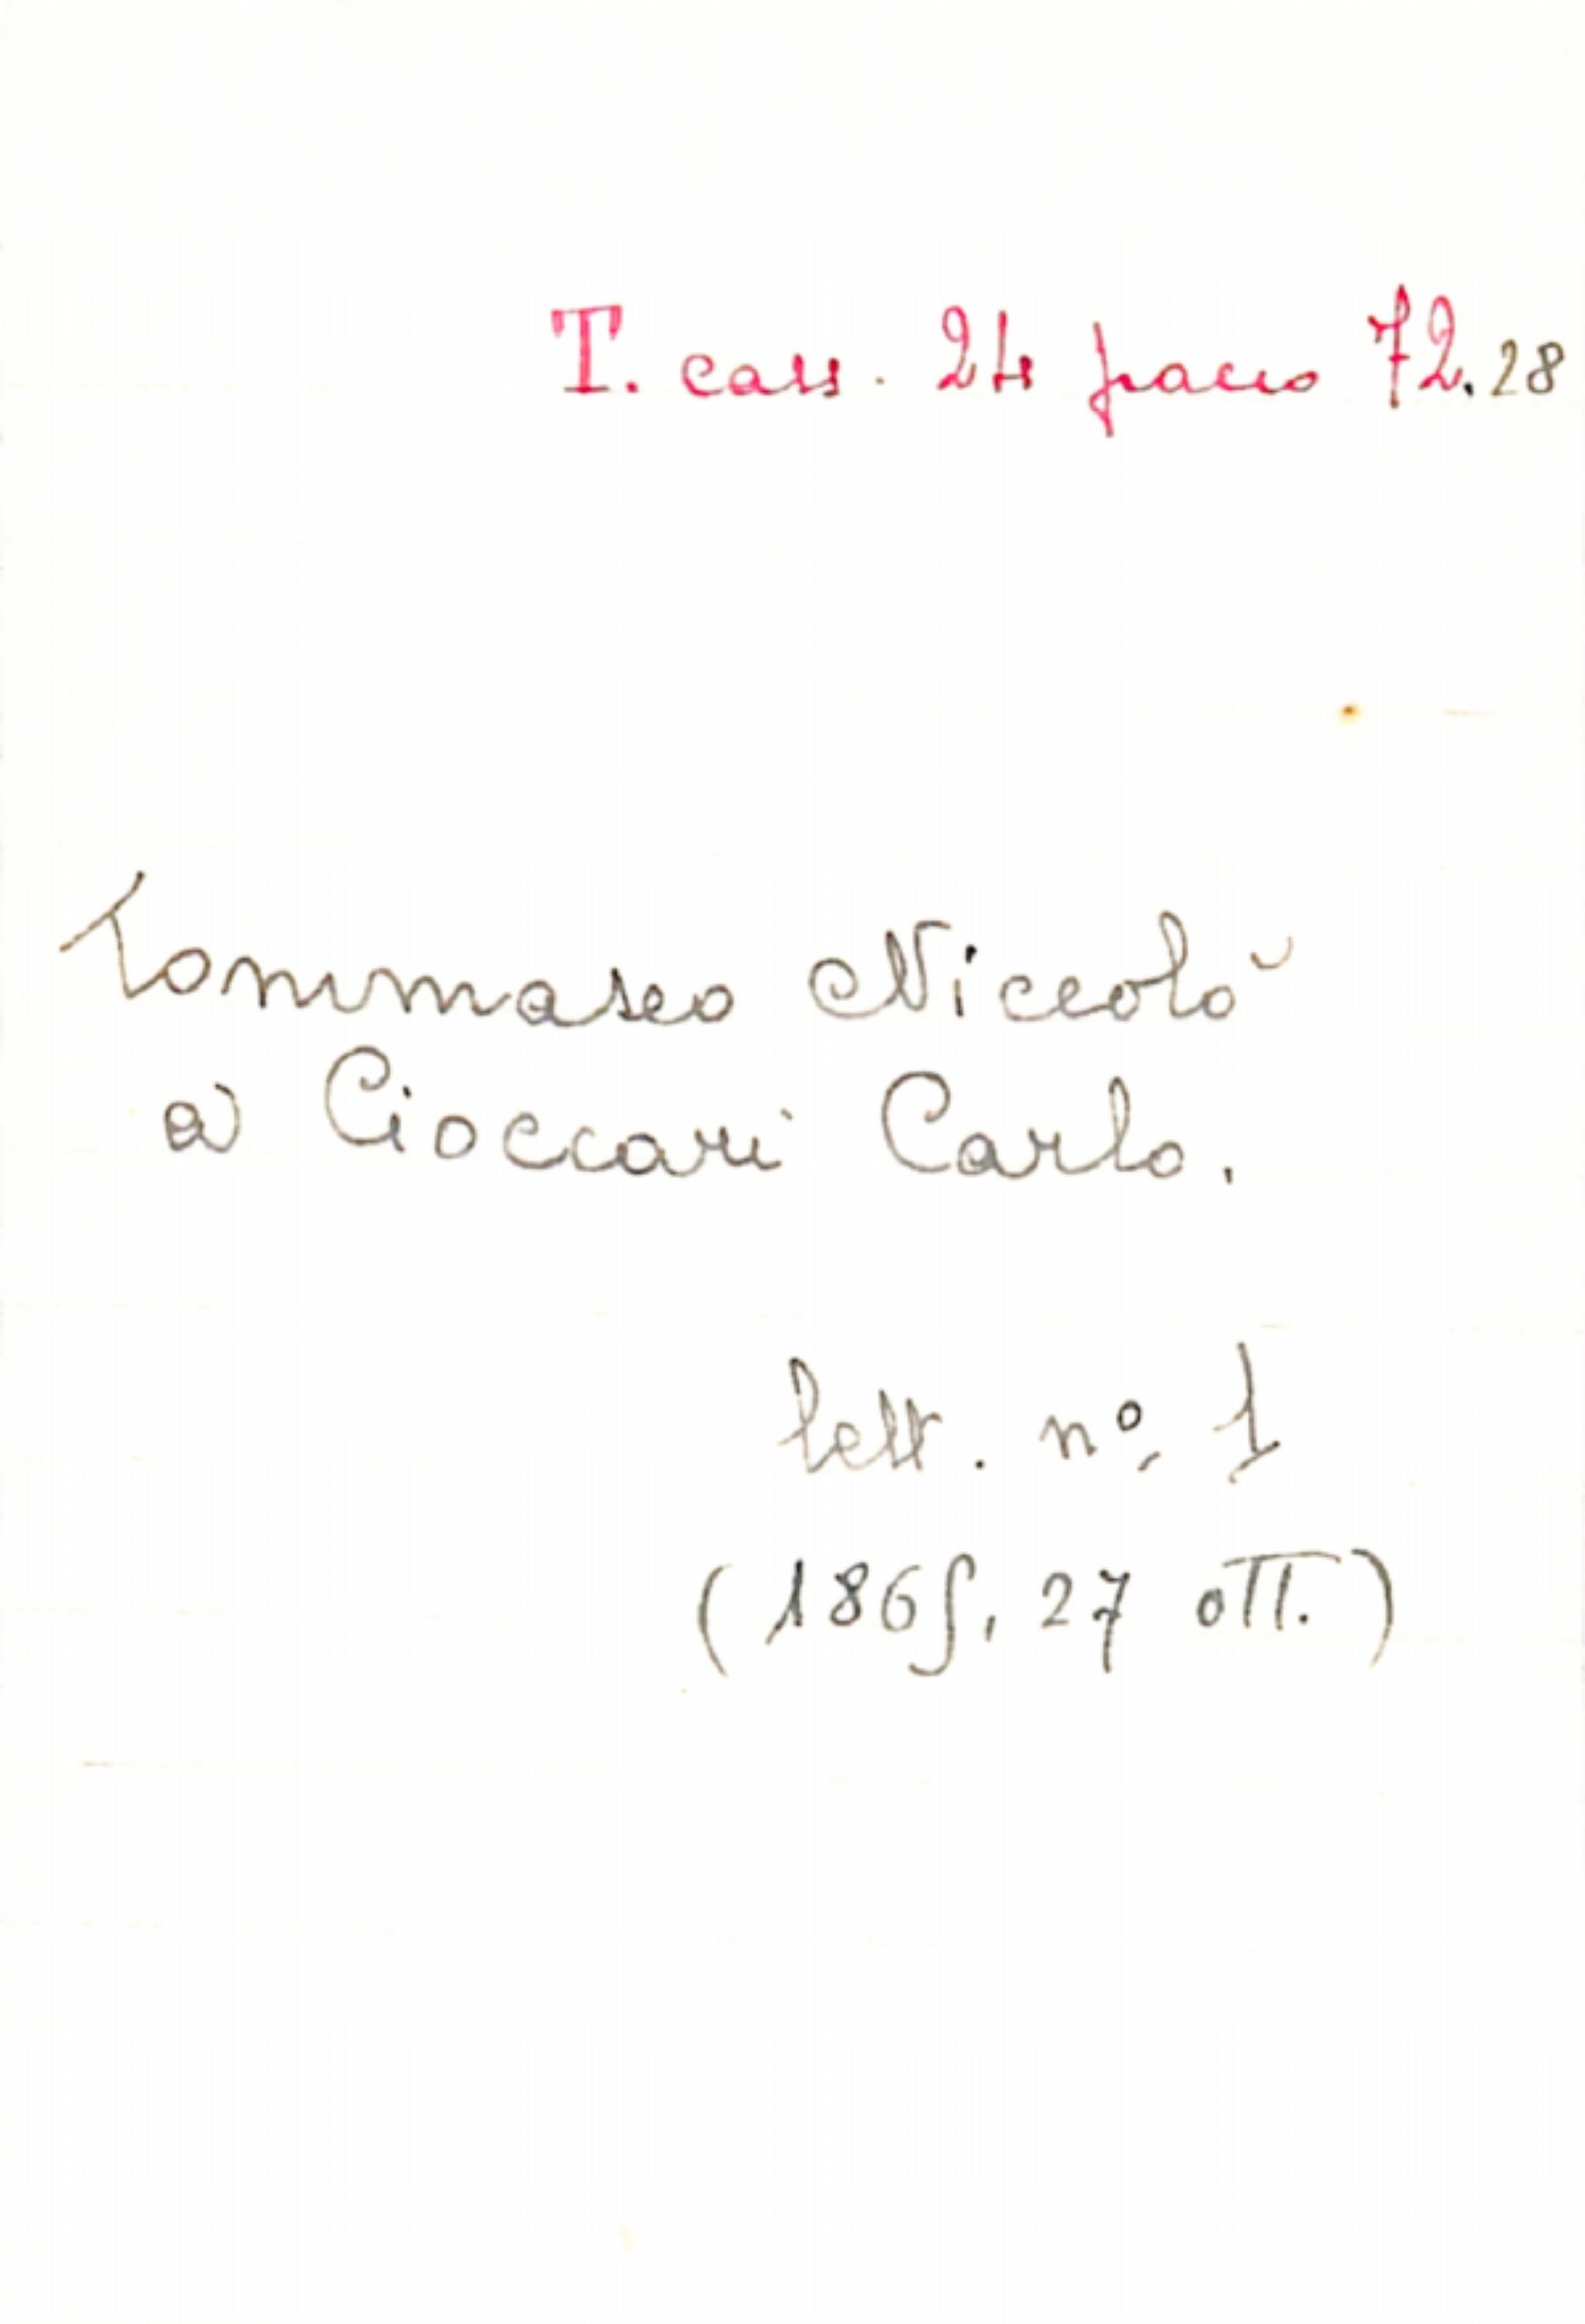 T. cass. 24 pacco 72.28
Tommaseo Niccolò
a Cioccari Carlo.
lett. nº. 1
(1865, 27 ott.)